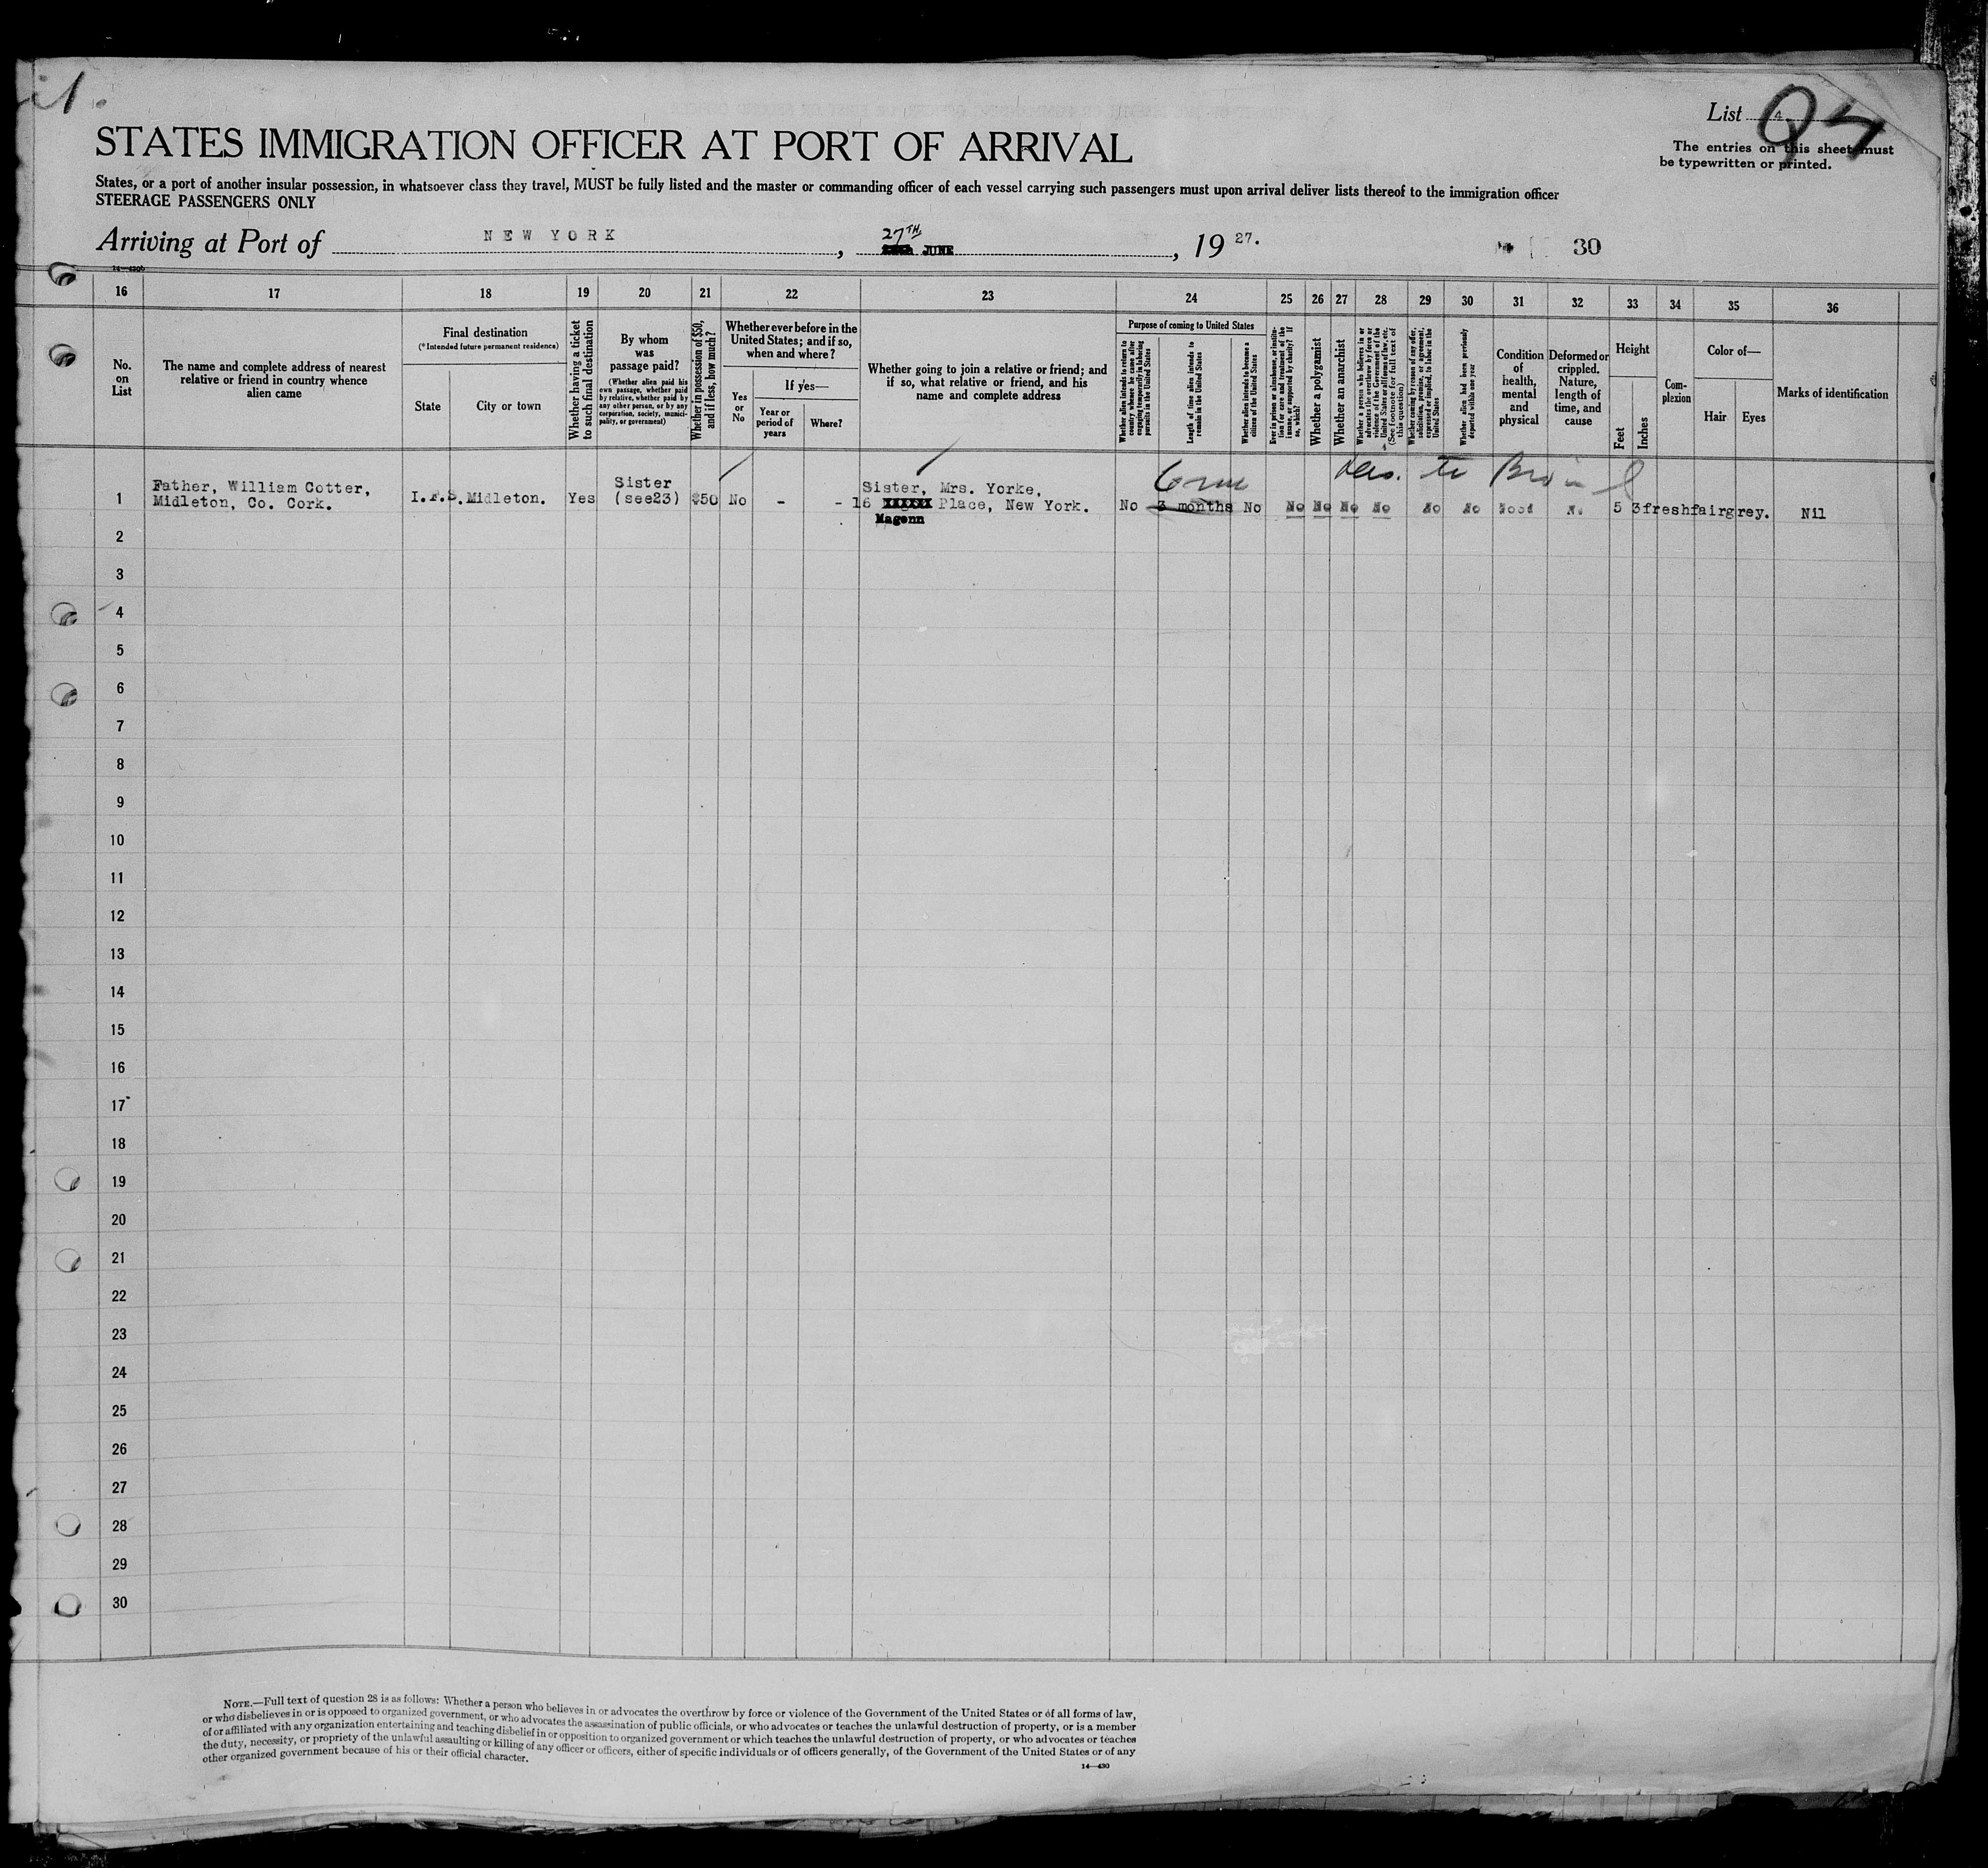 List 4
The entries on this sheet must
be typewritten or printed.
STATES IMMIGRATION OFFICER AT PORT OF ARRIVAL
States, or a port of another insular possession, in whatsoever class they travel, MUST be fully listed and the master or commanding officer of each vessel carrying such passengers must upon arrival deliver lists thereof to the immigration officer
STEERAGE PASSENGERS ONLY
Arriving at Port of NEW YORK, 27TH JUNE, 1927. 30
14—430b
16 17 18 19 20 21 22 23 24 25 26 27 28 29 30 31 32 33 34 35 36
No.
on
List
The name and complete address of nearest
relative or friend in country whence
alien came
Final destination
(*Intended future permanent residence)
State
City or town
Whether having a ticket
to such final destination
By whom
was
passage paid?
(Whether alien paid his
own passage, whether paid
by relative, whether paid by
any other person, or by any
corporation, society, munici-
pality, or government)
Whether in possession of $50,
and if less, how much?
Whether ever before in the
United States; and if so,
when and where?
Yes
or
No
If yes—
Year or
period of
years
Where?
Whether going to join a relative or friend; and
if so, what relative or friend, and his
name and complete address
Purpose of coming to United States
Whether alien intends to return to
country whence he came after
engaging temporarily in laboring
pursuits in the United States
Length of time alien intends to
remain in the United States
Whether alien intends to become a
citizen of the United States
Ever in prison or almshouse, or institu-
tion for care and treatment of the
insane, or supported by charity? If
so, which?
Whether a polygamist
Whether an anarchist
Whether a person who believes in or
advocates the overthrow by force or
violence of the Government of the
United States or all forms of law, etc.
(See footnote for full text of
this question)
Whether coming by reason of any offer,
solicitation, promise, or agreement,
expressed or implied, to labor in the
United States
Whether alien had been previously
deported within one year
Condition
of
health,
mental
and
physical
Deformed or
crippled.
Nature,
length of
time, and
cause
Height
Feet
Inches
Com-
plexion
Color of—
Hair
Eyes
Marks of identification
6 mos
Sister
Sister, Mrs. Yorke,
Father, William Cotter,
1 Midleton, Co. Cork. I.F.S. Midleton. Yes (see23) $50 No - - 16 Place, New York. No 3 months No No No No No No No Good No 5 3 fresh fair grey. Nil
Magenn
2
3
4
5
6
7
8
9
10
11
12
13
14
15
16
17
18
19
20
21
22
23
24
25
26
27
28
29
30
NOTE.—Full text of question 28 is as follows: Whether a person who believes in or advocates the overthrow by force or violence of the Government of the United States or of all forms of law,
or who disbelieves in or is opposed to organized government, or who advocates the assassination of public officials, or who advocates or teaches the unlawful destruction of property, or is a member
of or affiliated with any organization entertaining and teaching disbelief in or opposition to organized government or which teaches the unlawful destruction of property, or who advocates or teaches
the duty, necessity, or propriety of the unlawful assaulting or killing of any officer or officers, either of specific individuals or of officers generally, of the Government of the United States or of any
other organized government because of his or their official character.
14—430